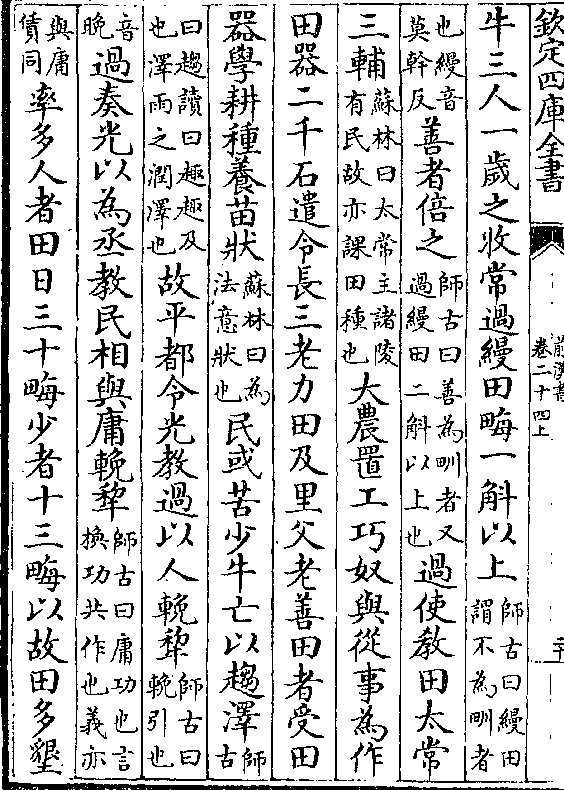 欽定四庫全書
前漢書
卷二十四上
牛三人一歲之收常過縵田畮一斛以上師古曰縵田謂不為甽者
也縵音莫幹反善者倍之師古曰善為甽者又過縵田二斛以上也過使教田太常
三輔蘇林曰太常主諸陵有民故亦課田種也大農置工巧奴與從事為作
田器二千石遣令長三老力田及里父老善田者受田
器學耕種養苗狀蘇林曰為法意狀也民或苦少牛亡以趨澤師古
曰趨讀曰趣趣及也澤雨之潤澤也故平都令光教過以人輓犂師古曰輓引也
音晚過奏光以為丞教民相與庸輓犂師古曰庸功也言換功共作也義亦
與庸賃同率多人者田日三十畮少者十三畮以故田多墾